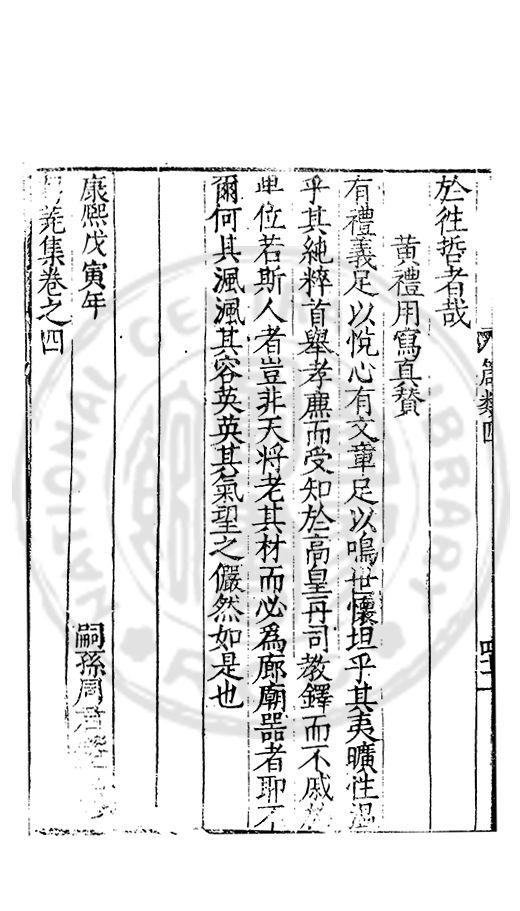 於徃哲者哉
黃禮用寫真贊
有禮義足以悅心有文章足以鳴世懷坦乎其夷曠性溫
乎其純粹首舉孝廉而受知於高皇再司教鐸而不戚於
卑位若斯人者豈非天將老其材而必為廊廟器者耶不
爾何其渢渢其容英英其氣望之儼然如是也
康熙戊寅年
嗣孫周君
蕘集卷之四
類四
NATIONAL CENTRAL LIBRARY